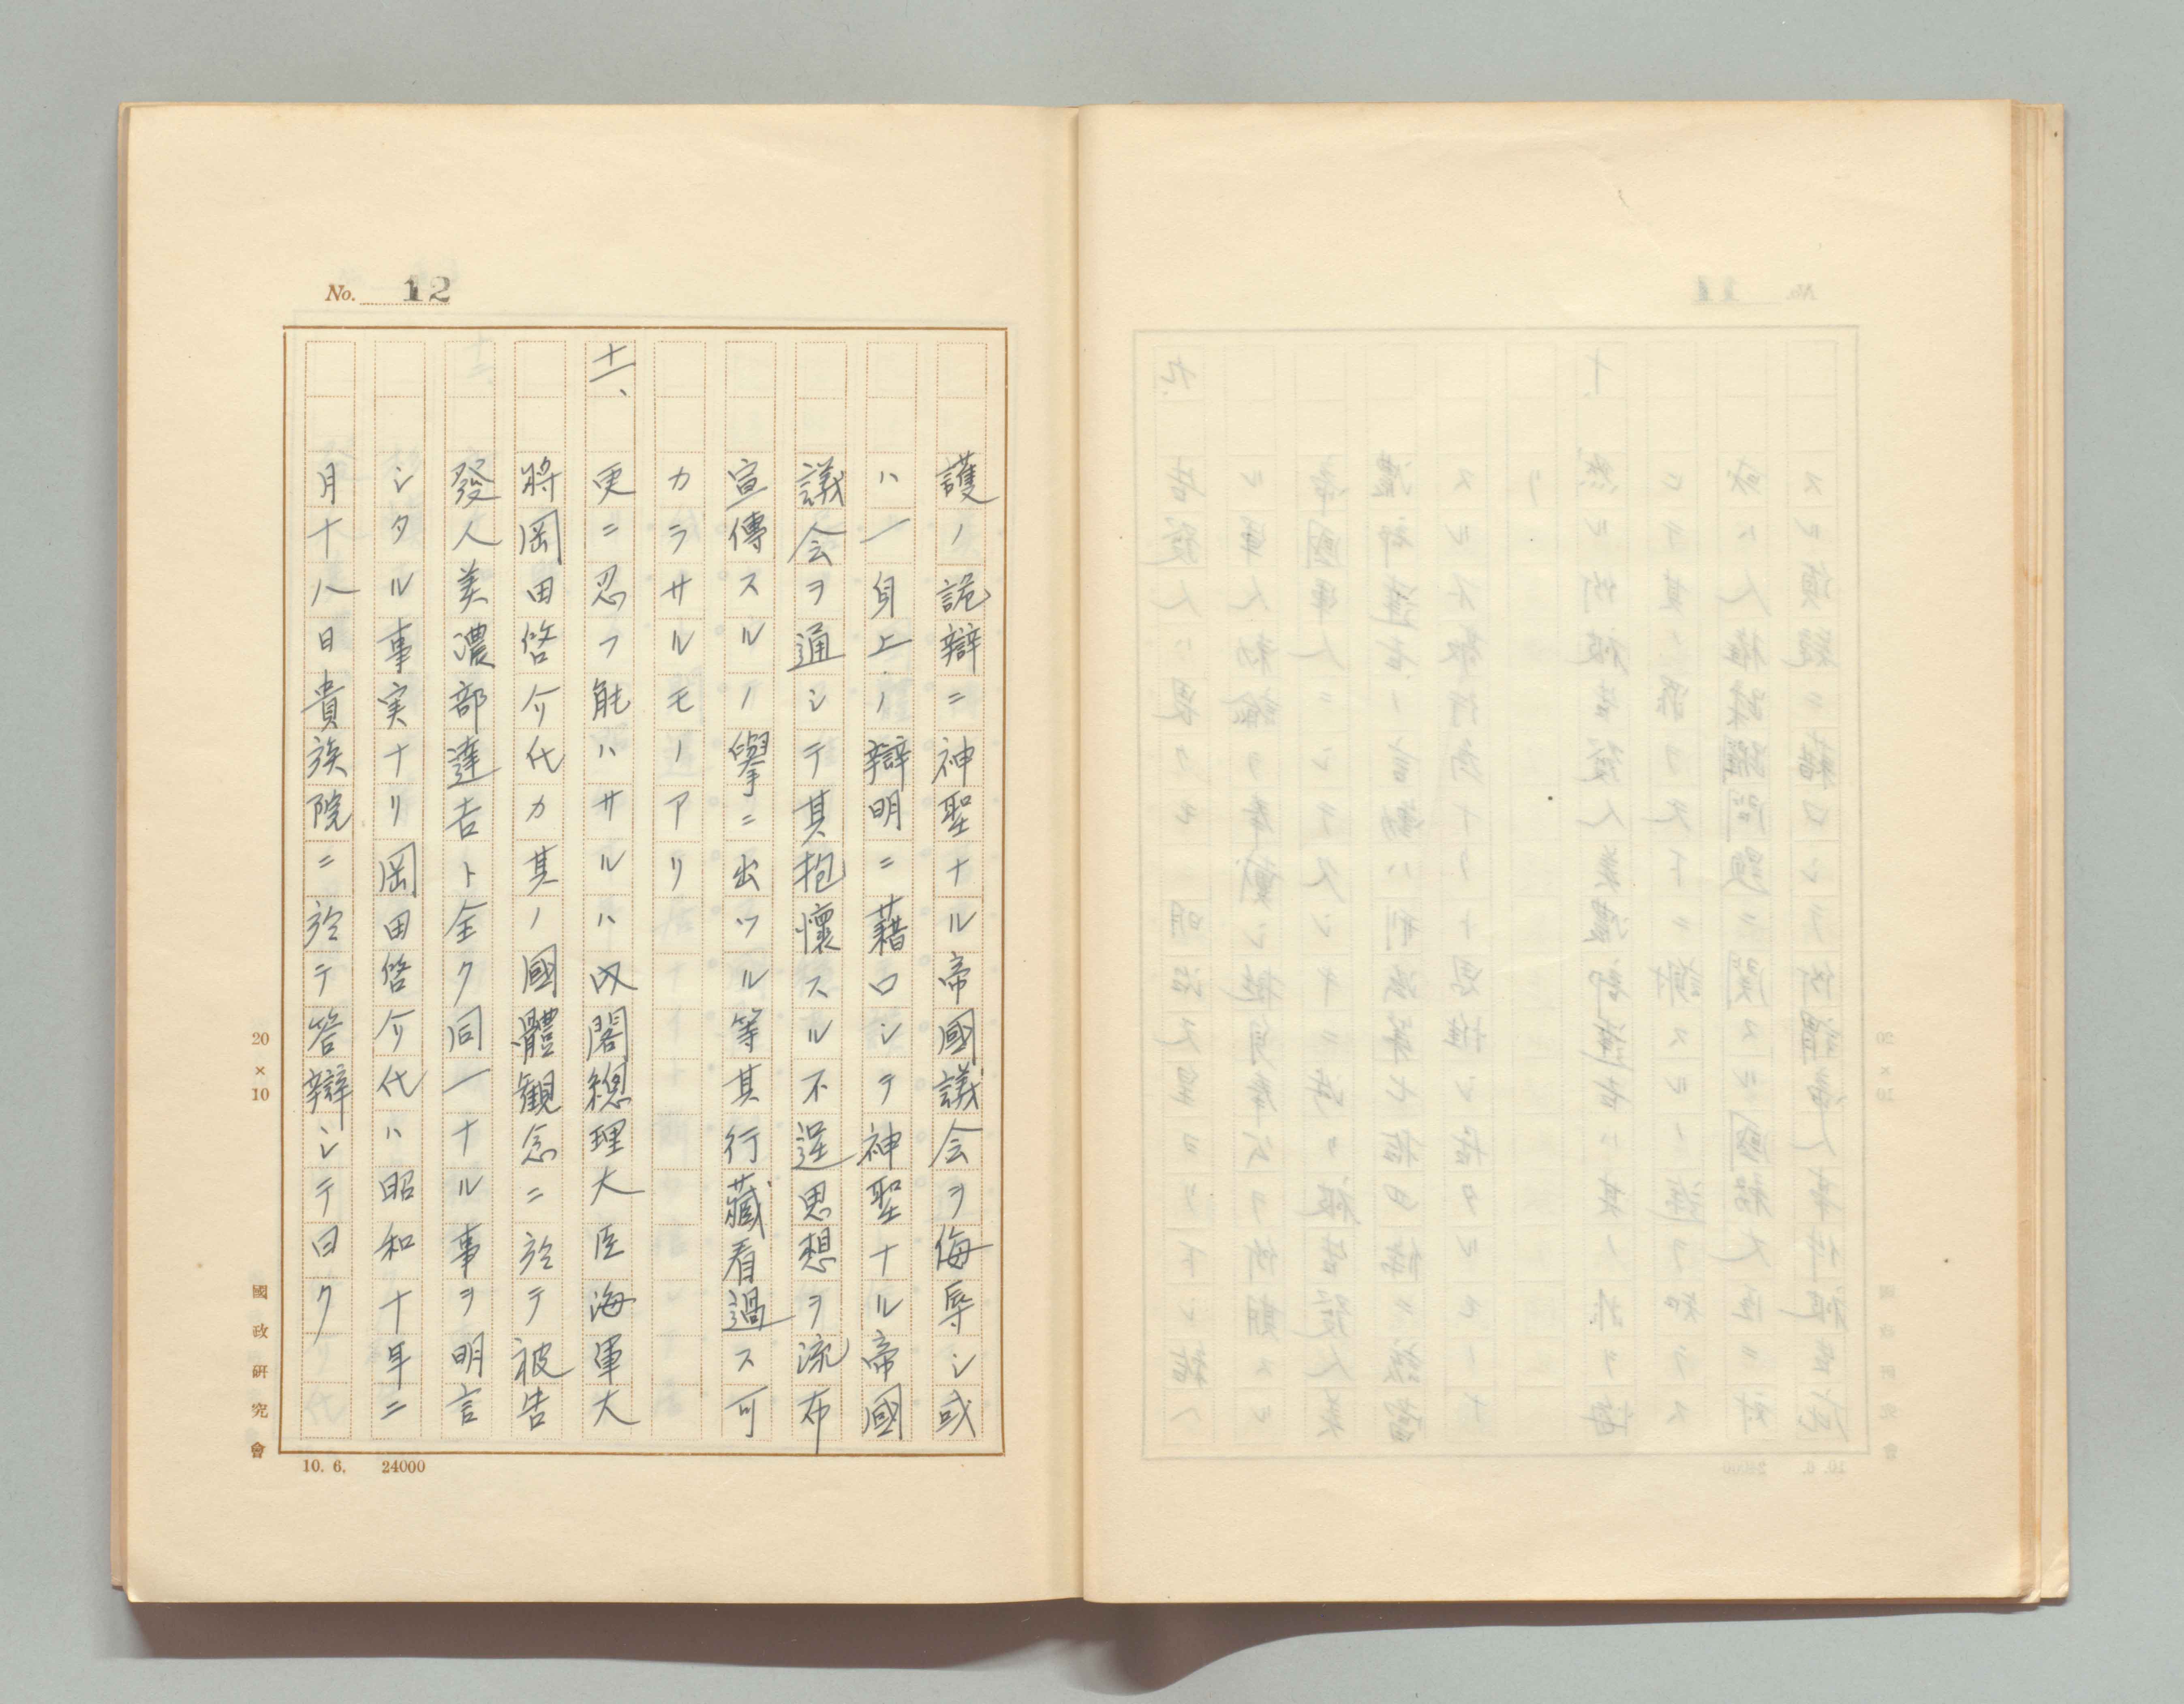 No. 12
護ノ詭辯ニ神聖ナル帝國議会ヲ侮辱シ或
ハ一身上ノ辯明ニ藉口シテ神聖ナル帝國
議会ヲ通シテ其抱懷スル不逞思想ヲ流布
宣傳スルノ擧ニ出ツル等其行藏看過ス可
カラサルモノアリ
十一、更ニ忍フ能ハサルハ内閣總理大臣海軍大
將岡田啓介代カ其ノ國體観念ニ於テ被告
發人美濃部達吉ト全ク同一ナル事ヲ明言
シタル事実ナリ岡田啓介代ハ昭和十年二
月十八日貴族院ニ於テ答辯シテ曰ク
20×10
國政研究會
10. 6. 24000